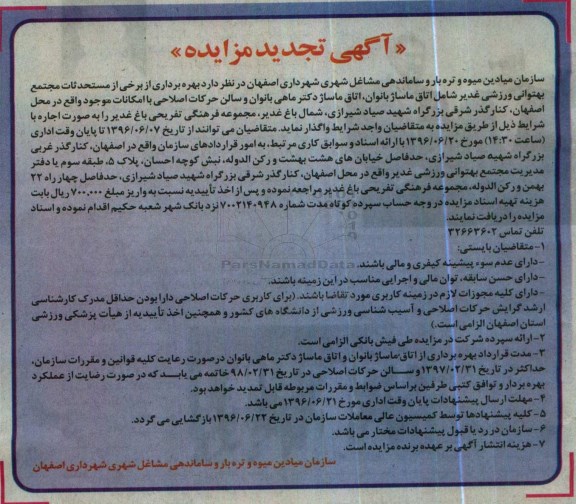 «آگهی تجدید مزایده»
سازمان میادین میوه و تره بار و ساماندهی مشاغل شهری شهرداری اصفهان در نظر دارد بهره برداری از برخی از مستحدثات مجتمع
بهتوانی ورزشی غدیر شامل اتاق ماساژ بانوان، اتاق ماساژ دکتر ماهی بانوان و سالن حرکات اصلاحی با امکانات موجود واقع در محل
اصفهان، کنارگذر شرقی بزرگراه شهید صیاد شیرازی، شمال باغ غدیر، مجموعه فرهنگی تفریحی باغ غدیر را به صورت اجاره با
شرایط ذیل از طریق مزایده به متقاضیان واجد شرایط واگذار نماید. متقاضیان می توانند از تاریخ ۱۳۹۶/۰۶/۰۷ تا پایان وقت اداری
(ساعت ۱۴:۳۰) مورخ ۱۳۹۶/۰۶/۲۰ با ارائه اسناد و سوابق کاری مرتبط، به امور قراردادهای سازمان واقع در اصفهان، کنارگذر غربی
بزرگراه شهید صیاد شیرازی، حدفاصل خیابان های هشت بهشت و رکن الدوله، نبش کوچه احسان، پلاک ۵، طبقه سوم یا دفتر
مدیریت مجتمع بهتوانی ورزشی غدیر واقع در محل اصفهان، کنارگذر شرقی بزرگراه شهید صیاد شیرازی، حدفاصل چهار راه ۲۲
بهمن و رکن الدوله، مجموعه فرهنگی تفریحی باغ غدیر مراجعه نموده و پس از اخذ تأییدیه نسبت به واریز مبلغ ۷۰۰,۰۰۰ ریال بابت
هزینه تهیه اسناد مزایده در وجه حساب سپرده کوتاه مدت شماره ۷۰۰۲۱۴۰۹۴۸ نزد بانک شهر شعبه حکیم اقدام نموده و اسناد
مزایده را دریافت نمایند.
تلفن تماس ۳۲۶۶۳۶۰۲
۱- متقاضیان بایستی:
- دارای عدم سوء پیشینه کیفری و مالی باشند.
ParsNamadData
- دارای حسن سابقه، توان مالی و اجرایی مناسب در این زمینه باشند.
- دارای کلیه مجوزات لازم در زمینه کاربری مورد تقاضا باشند. (برای کاربری حرکات اصلاحی دارا بودن حداقل مدرک کارشناسی
ارشد گرایش حرکات اصلاحی و آسیب شناسی ورزشی از دانشگاه های کشور و همچنین اخذ تأییدیه از هیأت پزشکی ورزشی
استان اصفهان الزامی است.)
۲- ارائه سپرده شرکت در مزایده طی فیش بانکی الزامی است.
۳- مدت قرارداد بهره برداری از اتاق ماساژ بانوان و اتاق ماساژ دکتر ماهی بانوان درصورت رعایت کلیه قوانین و مقررات سازمان،
حداکثر در تاریخ ۱۳۹۷/۰۲/۳۱ و سالن حرکات اصلاحی در تاریخ ۹۸/۰۲/۳۱ خاتمه می یابد که در صورت رضایت از عملکرد
بهره بردار و توافق کتبی طرفین براساس ضوابط و مقررات مربوطه قابل تمدید خواهد بود.
۴- مهلت ارسال پیشنهادات پایان وقت اداری مورخ ۱۳۹۶/۰۶/۲۱ می باشد.
۵- کلیه پیشنهادها توسط کمیسیون عالی معاملات سازمان در تاریخ ۱۳۹۶/۰۶/۲۲ بازگشایی می گردد.
۶- سازمان در رد یا قبول پیشنهادات مختار می باشد.
۷- هزینه انتشار آگهی بر عهده برنده مزایده است.
سازمان میادین میوه و تره بار و ساماندهی مشاغل شهری شهرداری اصفهان